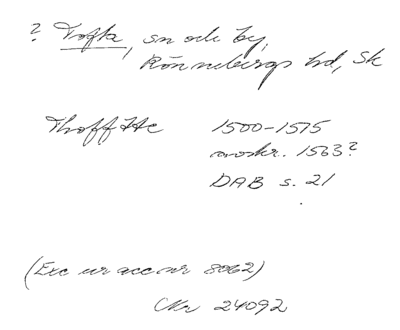 ? Tofta, sn och by,
Rönnebergs hd, Sk
Thofftte 1500-1515
avskr. 1563?
DAB s. 21
(Exc ur acc nr 8062)
Ckr 24092